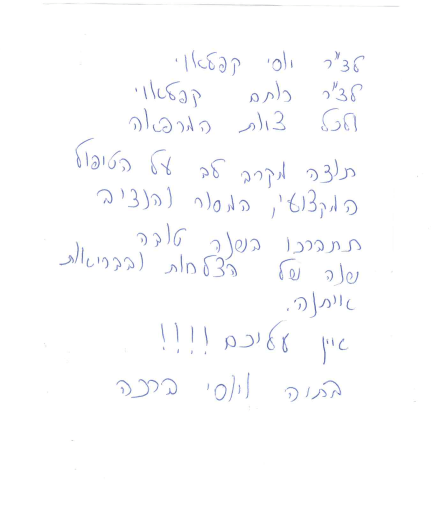 לד"ר יוסי קפטאוי
לד"ר רותם קפטאוי
ולכל צוות המרפאה
תודה מקרב לב על הטיפול
המקצועי, המסור והנדיב
תתברכו בשנה טובה
שנה של הצלחות ובבריאות
איתנה.
אין עליכם !!!!
בתיה ויוסי ברכה